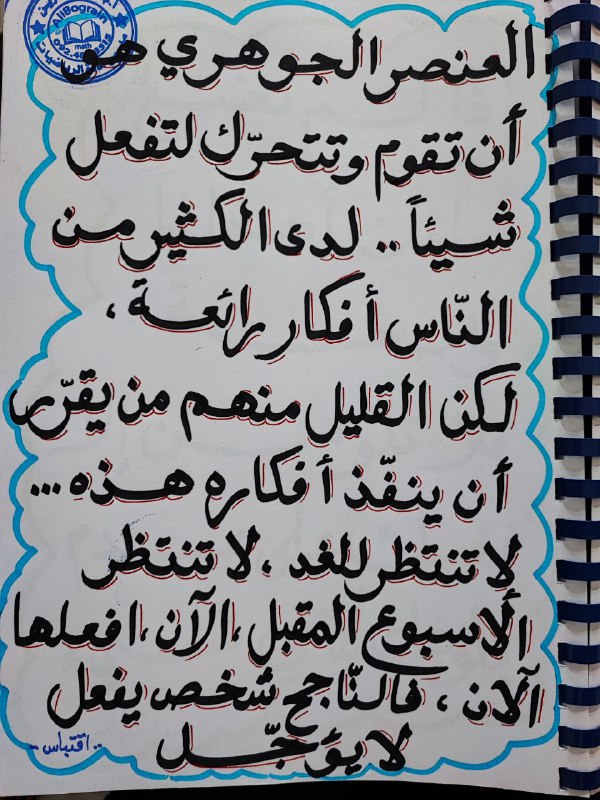 العنصر الجوهري هو
أن تقوم وتتحرّك لتفعل
شيئاً .. لدى الكثير من
النّاس أفكار رائعة ،
لكن القليل منهم من يقرّر
أن ينفّذ أفكاره هذه ...
لا تنتظر للغد ، لا تنتظر
الأسبوع المقبل ، الآن ، افعلها
الآن ، فالنّاجح شخص يفعل
لا يؤجّل
.. اقتباس ..
AliBograin
math